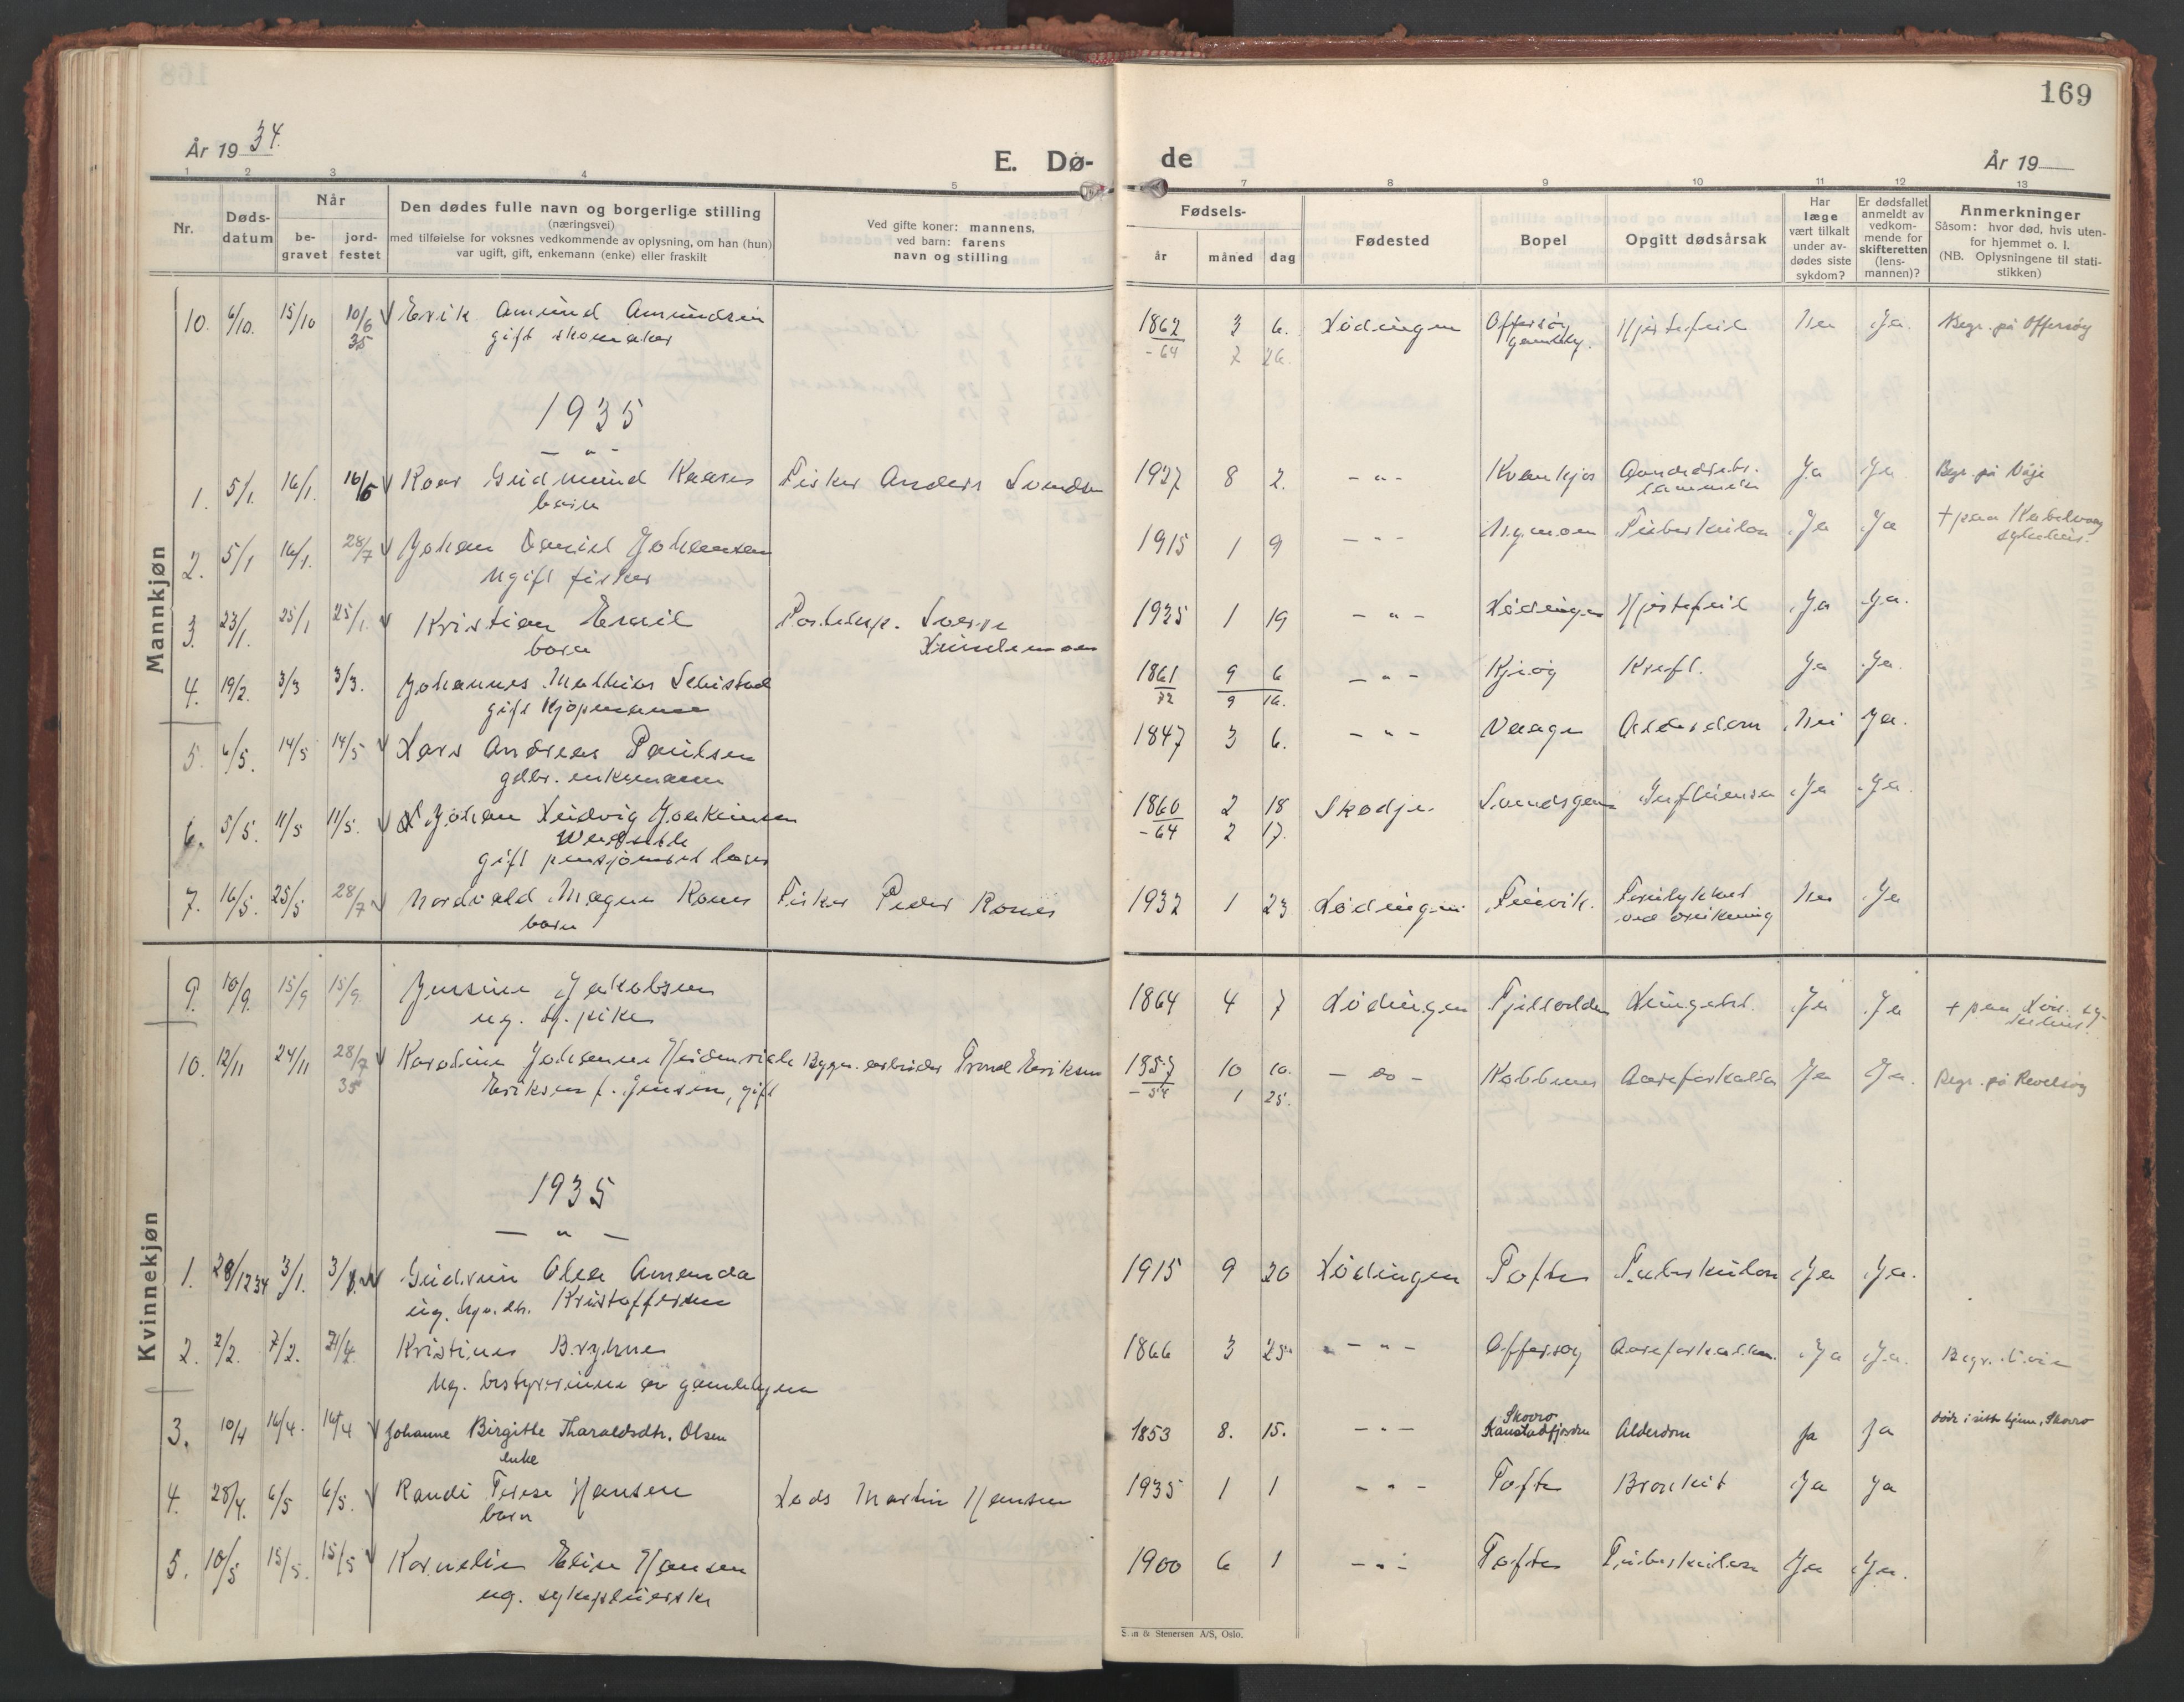 169
År 1934.
E. Dø-
de
År 19
1 2 3 4 5 7 8 9 10 11 12 13
Nr.
Døds-
datum
Når
be-
gravet
jord-
festet
Den dødes fulle navn og borgerlige stilling
(næringsvei)
med tilføielse for voksnes vedkommende av oplysning, om han (hun)
var ugift, gift, enkemann (enke) eller fraskilt
Ved gifte koner: mannens,
ved barn: farens
navn og stilling
Fødsels-
år måned dag
Fødested
Bopel
Opgitt dødsårsak
Har
læge
vært tilkalt
under av-
dødes siste
sykdom?
Er dødsfallet
anmeldt av
vedkom-
mende for
skifteretten
(lens-
mannen)?
Anmerkninger
Såsom: hvor død, hvis uten-
for hjemmet o. l.
(NB. Oplysningene til stati-
stikken)
Mannkjøn
10. 6/10. 15/10 10/6 Erik Amund Amundsen 1862 3 6. Lødingen Offersøy Hjertefeil Nei Ja. Begr. på Offersøy
35 gift skomaker -64 7 26. gamlehj.
1935
- " -
1. 5/1. 16/1. 16/6 Roar Gudmund Kaares Fisker Anders Svendsen 1927 8 2. - " - Kvankjos Ja Ja Begr. på Våje
barn
2. 5/1 16/1. 28/7 Johan Daniel Johansen 1915 1 9 - " - Nymoen Tuberkulos Ja Ja + paa Kabelvaag
Ugift fisker sykehus.
3. 23/1. 25/1 25/1. Kristian Emil Postekp. Sverre 1935 1 19 - " - Lødingen Hjertefeil Ja Ja.
barn
4. 19/2. 3/3 3/3. Johannes Mathias Seristad 1861 9 6 - " - Kjeøy Kreft. Ja Ja.
gift Kjøpmann 72 9 16.
5. 6/5. 14/5 14/5 Lars Andreas Paulsen 1847 3 6. - " - Vaage Alderdom Nei Ja.
gdbr. enkemann
6. 5/5. 11/5 11/5. Johan Ludvig Joakimsen 1860 2 18 Skodje. Influensa Ja Ja.
gift pensjonert -64 2 17.
7. 16/5. 25/5 28/7 Nordvald Magne Rones Fisker Peder Rones 1932 1 23 Lødingen Finvik. Forulykket Nei Ja
barn ved drukning
Kvinnekjøn
9. 10/9. 15/9 15/9. Jensine Jakobsen 1864 4 7 Lødingen Fjelldalen Lungebet. Ja Ja + paa Lød. sy-
ug. tj. pike kehus.
10. 12/11 24/11 28/7 Karoline Johanne Heidenrich Bygn. arbeider Trond Eriksen 1857 10 10. - do - Kobbnes Aareforkalkn Ja Ja. Begr. på Revelsøy
35 Eriksen f. Jensen, gift -54 1 25.
1935
- " -
1. 28/12 34 3/1. 3/1. Gudrun Olea Amanda 1915 9 20 Lødingen Tofte Tuberkulose Ja Ja.
ug. hjv. dtr. Kristoffersen
2. 2/2. 7/2. 21/4 Kristine Bryhne 1866 3 25 - " - Offersøy Aareforkalkn. Ja Ja.
Ug. bestyrerinne av gamlehjem
3. 10/4 16/4. 16/4 Johanne Birgitte Tharaldsdtr. Olsen 1853 8. 15. - " - Skovro Kanstadfjorden Alderdom Ja Ja død i sitt hjem, Skovro
enke
4. 28/4. 6/5 6/5. Randi Terese Hansen Lods Martin Hansen 1935 1 1 - " - Tofte Bronkit Ja Ja
barn
5. 10/5 15/5. 15/5 Kornelie Elise Hansen 1900 6 1 - " - Tofte Tuberkulose Ja Ja.
ug. sykepleierske
Stenersen A/S, Oslo.